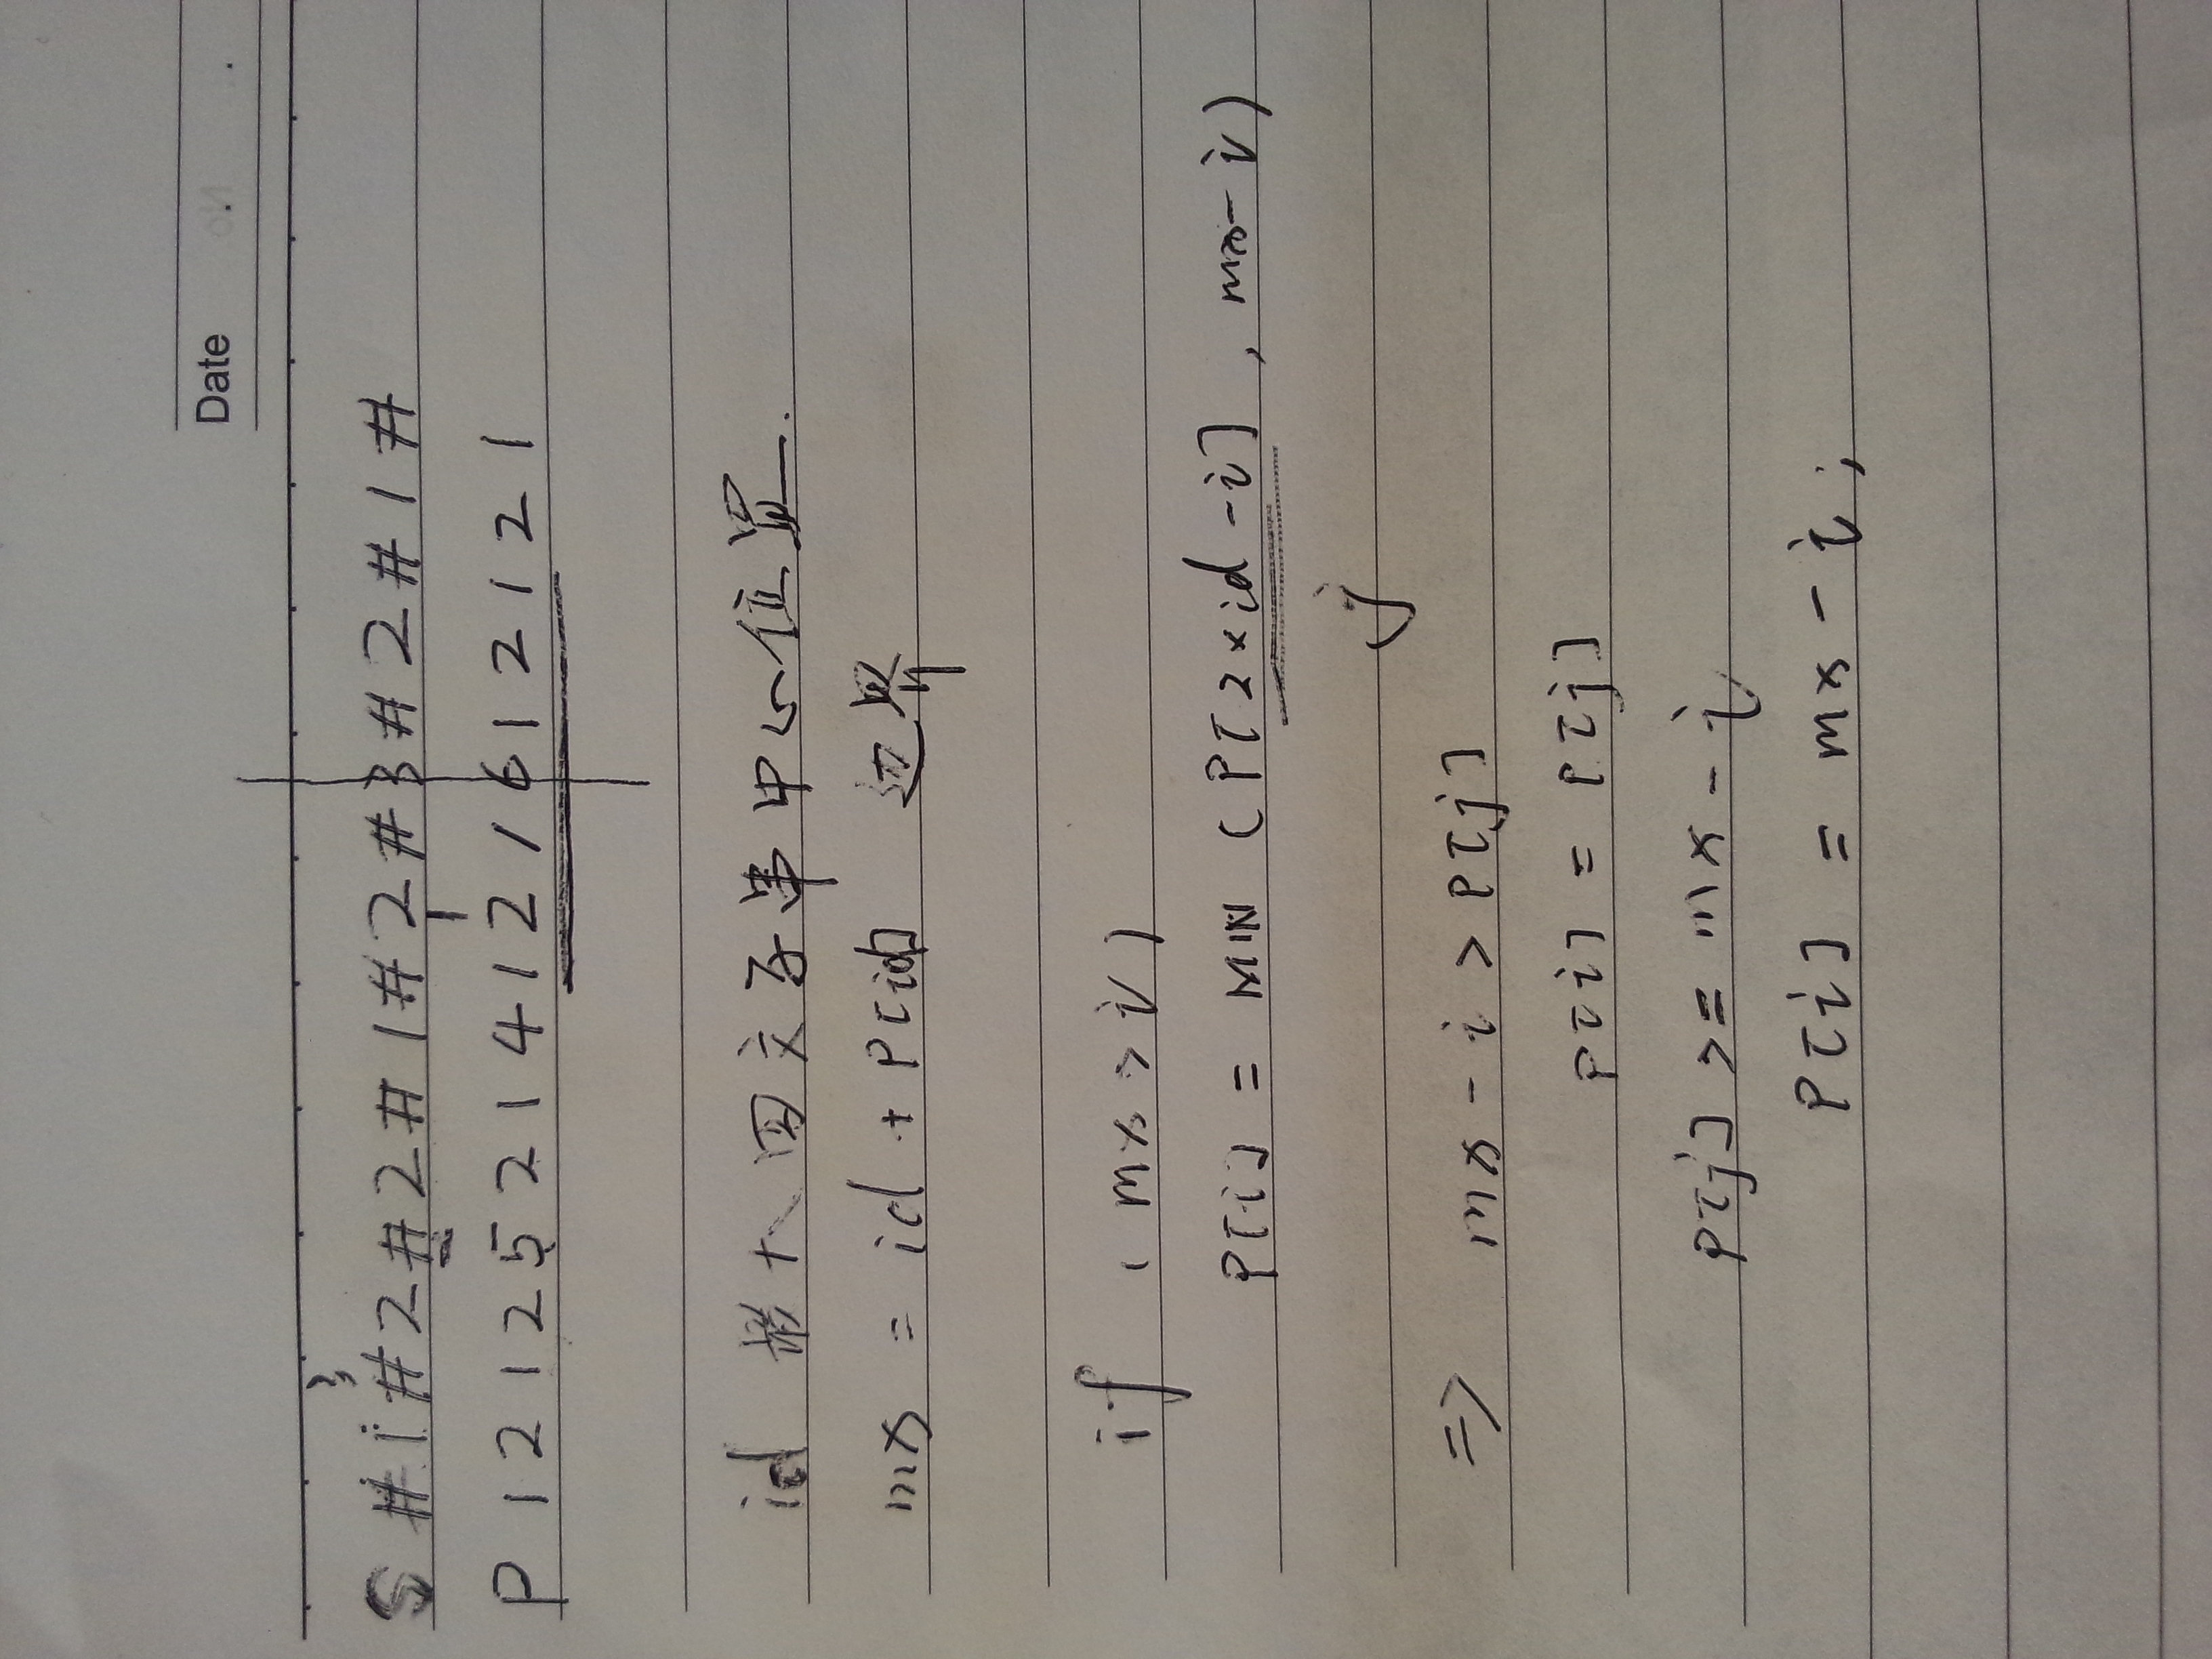 Date
3
S # 1 # 2 # 2 # 1 # 2 # 3 # 2 # 1 #
P 1 2 1 2 5 2 1 4 1 2 1 6 1 2 1 2 1
id 最大回文子串中心位置.
mx = id + P[id] 边界
if (mx > i)
P[i] = MIN (P[2×id-i], mx-i)
j
=> mx - i > P[j]
P[i] = P[j]
P[j] >= mx - i
P[i] = mx - i;